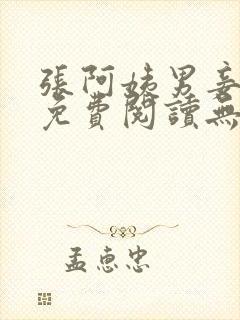 張阿姨男妾
免費閱讀無
孟惠忠